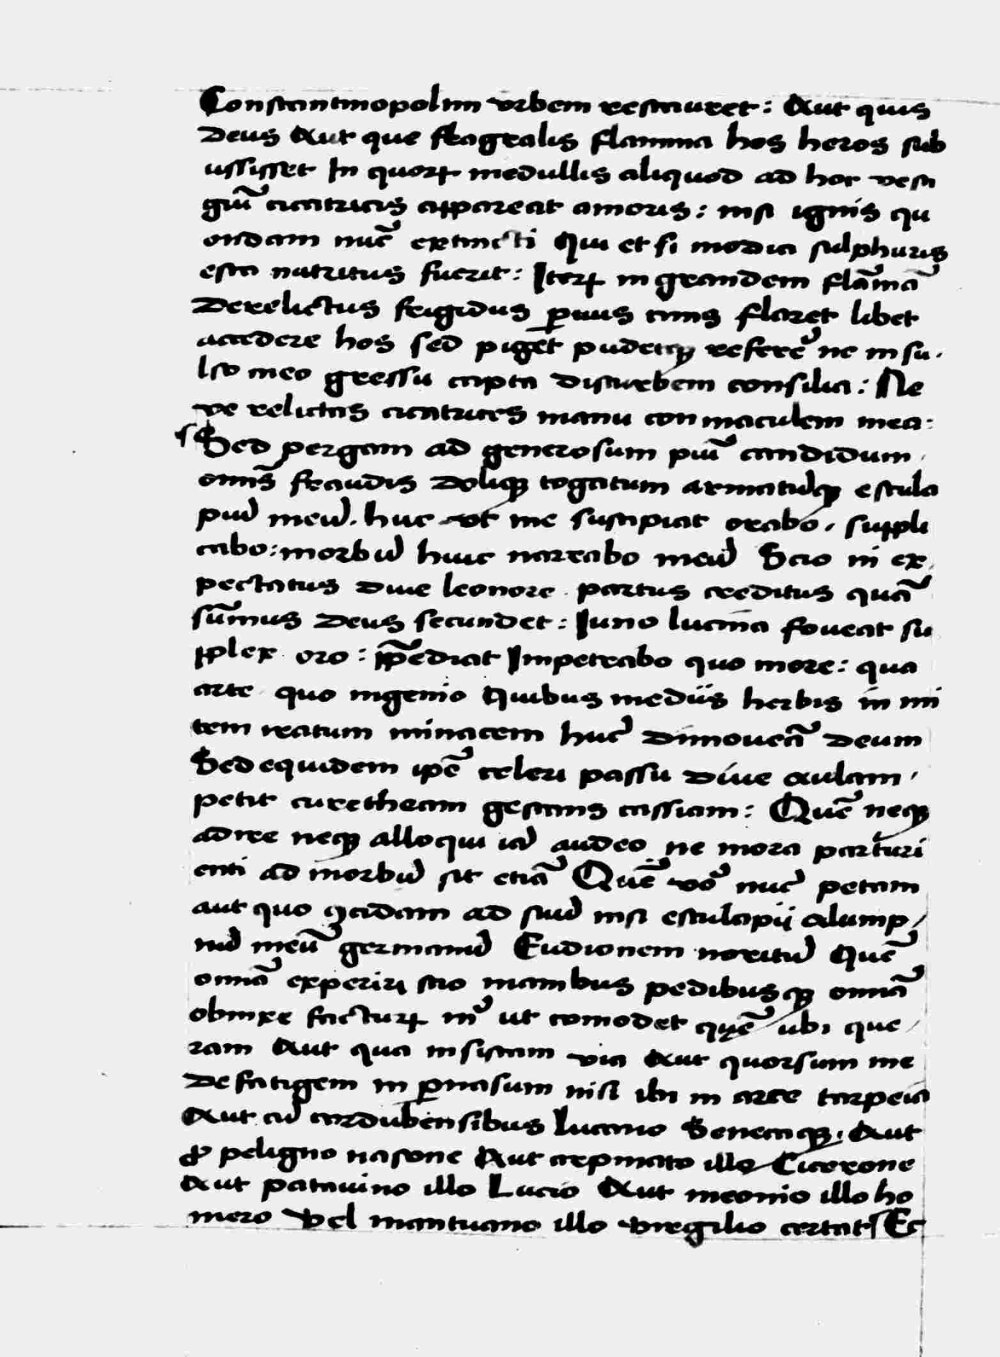 Constantinopolim urbem restauret: Aut quis
Deus Aut que fragralis flamma hos heros sub
ussisset In quorꝝ medullis aliquod ad hoc vesti
giū cicatricis appareat amoris: nisi ignis qu
ondam nūc extincti Qui et si modia sulphuris
esca nutritus fuerit: Iterꝝ in grandem flāmā
Derelictus frigidus ꝑuus cinis flaret libet
accedere hos sed piget pudetqꝫ referre ne in su
lso meo gressu capta disturbem consilia: Ne
ve relictas cicatrices manu con maculem mea:
Sed pergam ad generosum piū candidum
omīs fraudis doliqꝫ togatum armatūqꝫ escula
piū meū. huc ut me suscipiat orabo. suppli
cabo: morbū huic narrabo meū Scio ni ex
pectatus dive leonore partus creditus quā
sūmus Deus secundet: Iuno lucina foveat su
pplex oro: īpediat Impetrabo quo more: qua
arte quo ingenio Quibus mediis herbis in mi
tem reatum minacem hūc dimoveā deum
Sed equidem ipē celeri passu dive aulam
petit curetheam gestans cassiam: Quē neqꝫ
adire neqꝫ alloqui iā audeo ne mora parturi
enti ad morbū sit etiā Quē vō nūc petam
aut quo ꝯcidam ad suū nisi esculapii alump
nū meū germanū Eudionem noxitū Quē
omīa experiri scio manibus pedibusqꝫ omīa
obnixe facturꝝ mͥ ut comodet quē ubi que
ram Aut qua insistam via Aut quorsum me
Defatigem in ꝑnasum nisi ibi in arce tarpeia
Aut cū cordubensibus Lucano Senecaqꝫ. Aut
ꝓ peligno nasone Aut arpinato illo Cicerone
Aut patavino illo Lucio Aut meonio illo ho
mero Vel mantuano illo virgilio certat Ec